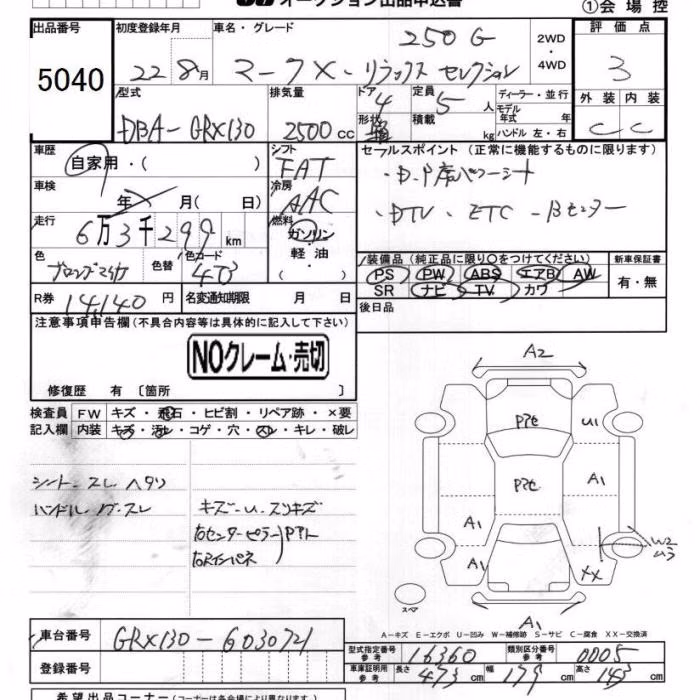 オークション出品申込書 ①会場控
出品番号 初度登録年月 車名・グレード 250G 2WD・4WD 評価点
5040 22 8月 マークX・リラックスセレクション 3
型式 排気量 ドア 4 定員 5人 ディーラー・並行 外装 内装
DBA-GRX130 2500cc 形状 積載 kg モデル年式 年 ハンドル 左・右 C C
車歴 自家用・( ) シフト FAT セールスポイント (正常に機能するものに限ります)
車検 年 月(日) 冷房 AAC ・D.P席パワーシート
走行 6万3千299km 燃料 ガソリン・軽油・( ) ・DTV ・ETC ・Bセンター
色 色替 色コード 4T3 装備品 (純正品に限り○をつけてください) 新車保証書
PS PW ABS エアB AW 有・無
SR ナビ TV カワ
R券 14,140円 名変通知期限 月 日 後日品
注意事項申告欄(不具合内容等は具体的に記入して下さい)
NOクレーム・売切
修復歴 有〔箇所 〕
検査員 FW キズ・飛石・ヒビ割・リペア跡・×要
記入欄 内装 キズ・汚レ・コゲ・穴・スレ・キレ・破レ
シート スレ ヘタリ
ハンドル、ノブ・スレ
キズ・U.スリキズ
右センターピラー Pアト
右Rインパネ
A2
Pアセ U1
Pアセ A1
A1
W2
U3
A1 XX
スペア A1
A-キズ E-エクボ U-凹み W-補修跡 S-サビ C-腐食 XX-交換済
車台番号 GRX130-6030721 型式指定番号 参考 16360 類別区分番号 参考 0005
登録番号 車庫証明用 参考 長さ 473cm 幅 179cm 高さ 143cm
希望出品コーナー(コーナーは各会場により異なります)